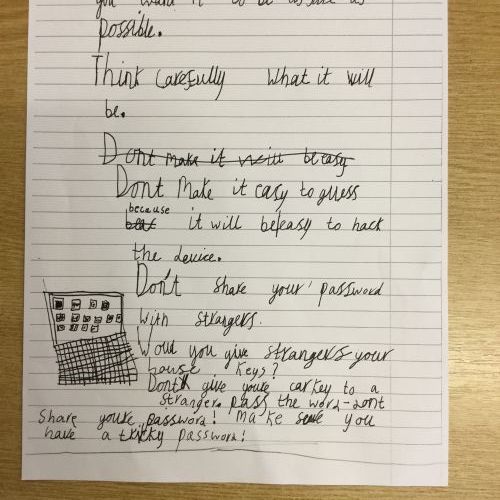 you want it to be as safe as
possible.
Think carefully What it will
be.
Dont make it will be easy
Dont Make it easy to guess
because
it will be easy to hack
the device.
Don't share your password
with strangers.
Woud you give strangers your
house keys?
Dont give youre carkey to a
stranger. pass the word-dont
Share youre password! Make sure you
have a tricky password!